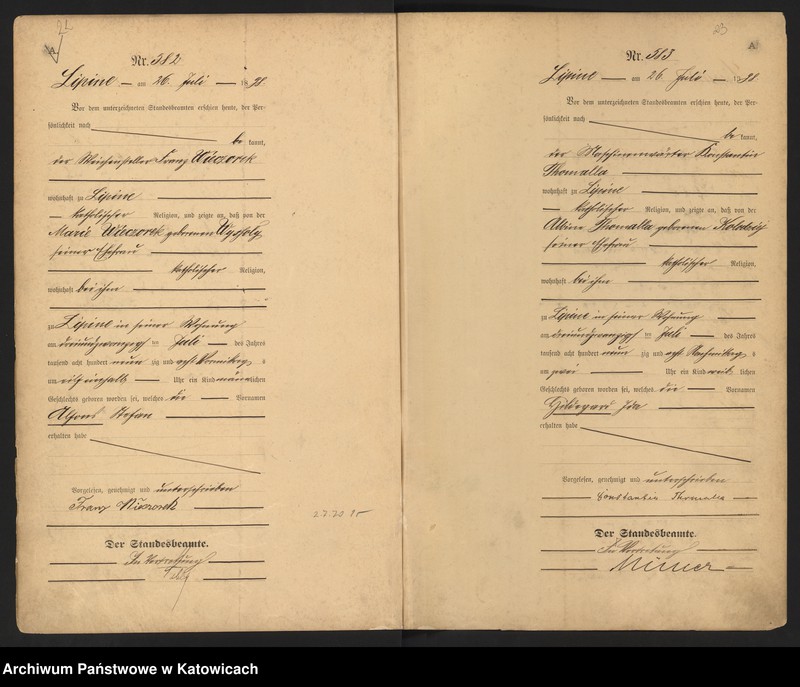 22
A
Nr. 382
Lipine am 26. Juli 1898
Vor dem unterzeichneten Standesbeamten erschien heute, der Per-
sönlichkeit nach
be kannt,
der Weichensteller Franz Wieczorek
wohnhaft zu Lipine
katholischer Religion, und zeigte an, daß von der
Marie Wieczorek geborenen
seiner Ehefrau
katholischer Religion,
wohnhaft bei ihm
zu Lipine in seiner Wohnung
am dreiundzwanzigsten ten Juli des Jahres
tausend acht hundert neun zig und acht Vormittags
um elf einhalb Uhr ein Kind männlichen
Geschlechts geboren worden sei, welches die Vornamen
Alfons Stefan
erhalten habe
Vorgelesen, genehmigt und unterschrieben
Franz Wieczorek
Der Standesbeamte.
In Vertretung
23
A.
Nr. 383
Lipine am 26. Juli 1898
Vor dem unterzeichneten Standesbeamten erschien heute, der Per-
sönlichkeit nach
be kannt,
der Maschinenwärter Konstantin
Thomalla
wohnhaft zu Lipine
katholischer Religion, und zeigte an, daß von der
Albine Thomalla geborenen Kolodziej
seiner Ehefrau
katholischer Religion,
wohnhaft bei ihm
zu Lipine in seiner Wohnung
am dreiundzwanzigsten ten Juli des Jahres
tausend acht hundert neun zig und acht Nachmittags
um zwei Uhr ein Kind weib lichen
Geschlechts geboren worden sei, welches die Vornamen
Hildegard Ida
erhalten habe
Vorgelesen, genehmigt und unterschrieben
Constantin Thomalla
Der Standesbeamte.
In Vertretung
Archiwum Państwowe w Katowicach